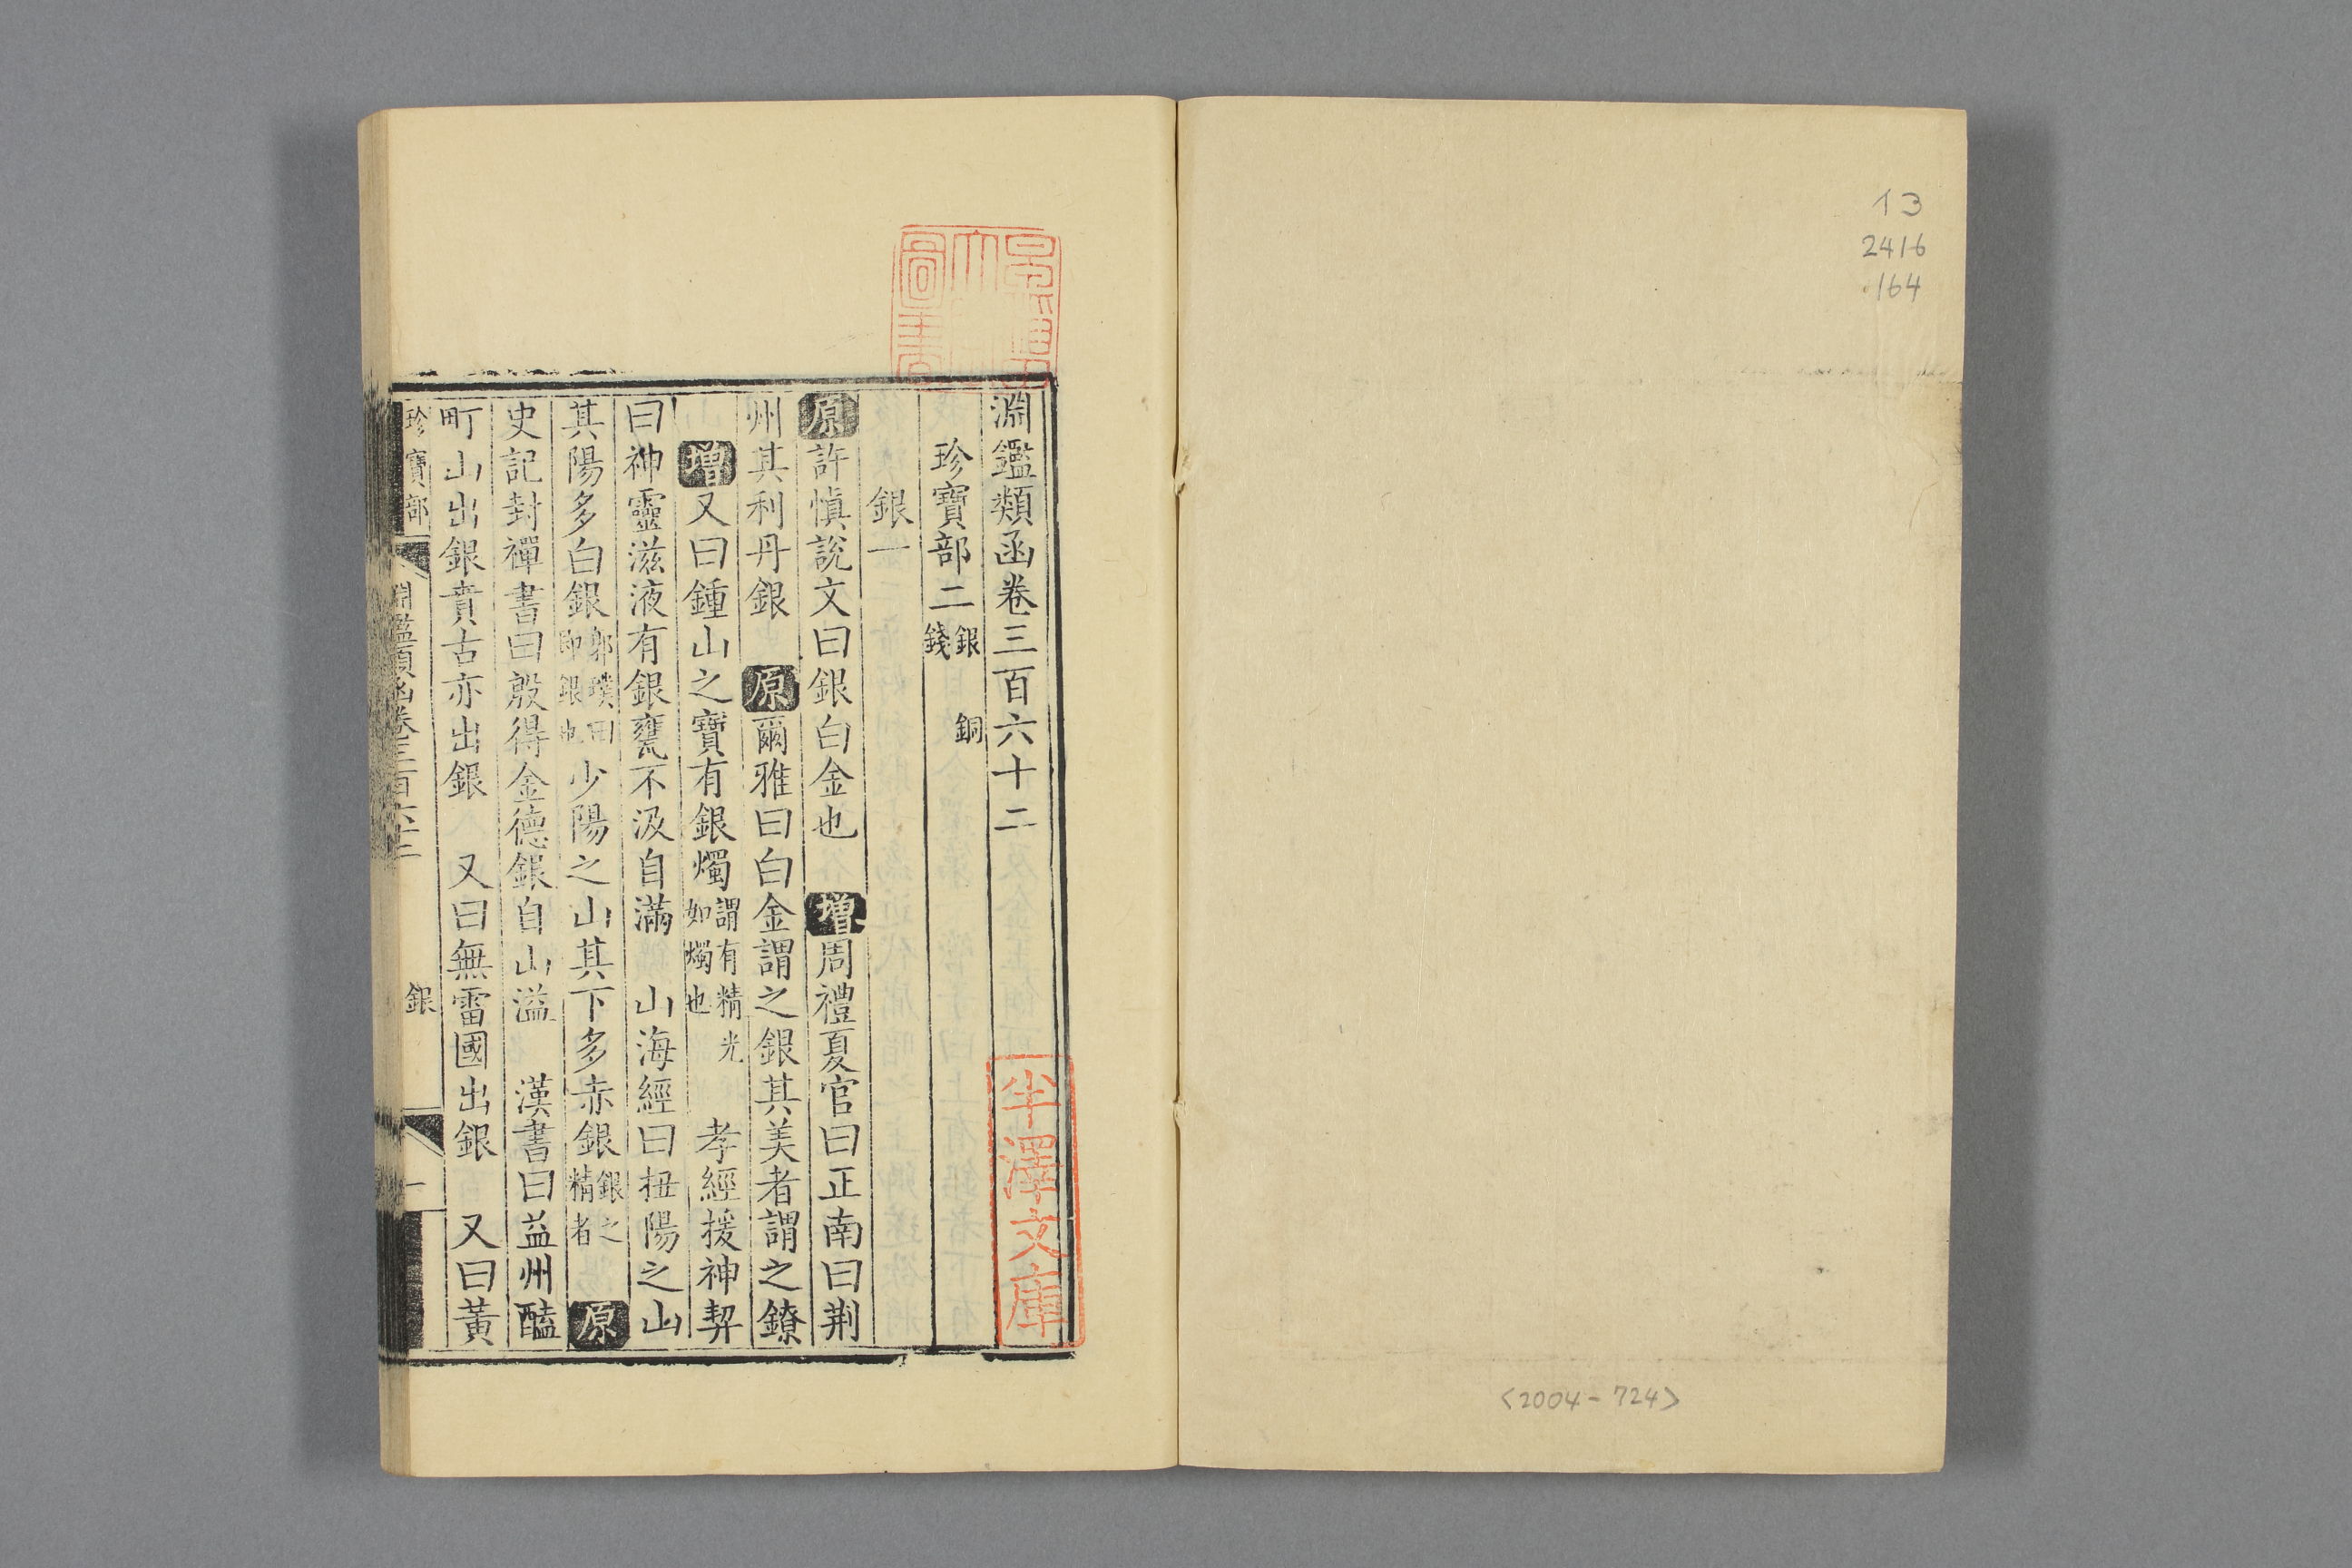 13
2416
164
<2004-724>
淵鑑類函卷三百六十二
珍寶部二 銀 銅 錢
銀一
原許慎說文曰銀白金也 增周禮夏官曰正南曰荆
州其利丹銀 原爾雅曰白金謂之銀其美者謂之鐐
增又曰鍾山之寶有銀燭 謂有精光如燭也 孝經援神契
曰神靈滋液有銀甕不汲自滿 山海經曰扭陽之山
其陽多白銀 郭璞曰即銀也 少陽之山其下多赤銀 銀之精者 原
史記封禪書曰殷得金德銀自山溢 漢書曰益州醘
町山出銀賁古亦出銀 又曰無雷國出銀 又曰黃
珍寶部 淵鑑類函卷三百六十二 銀 一
半澤文庫
圖書